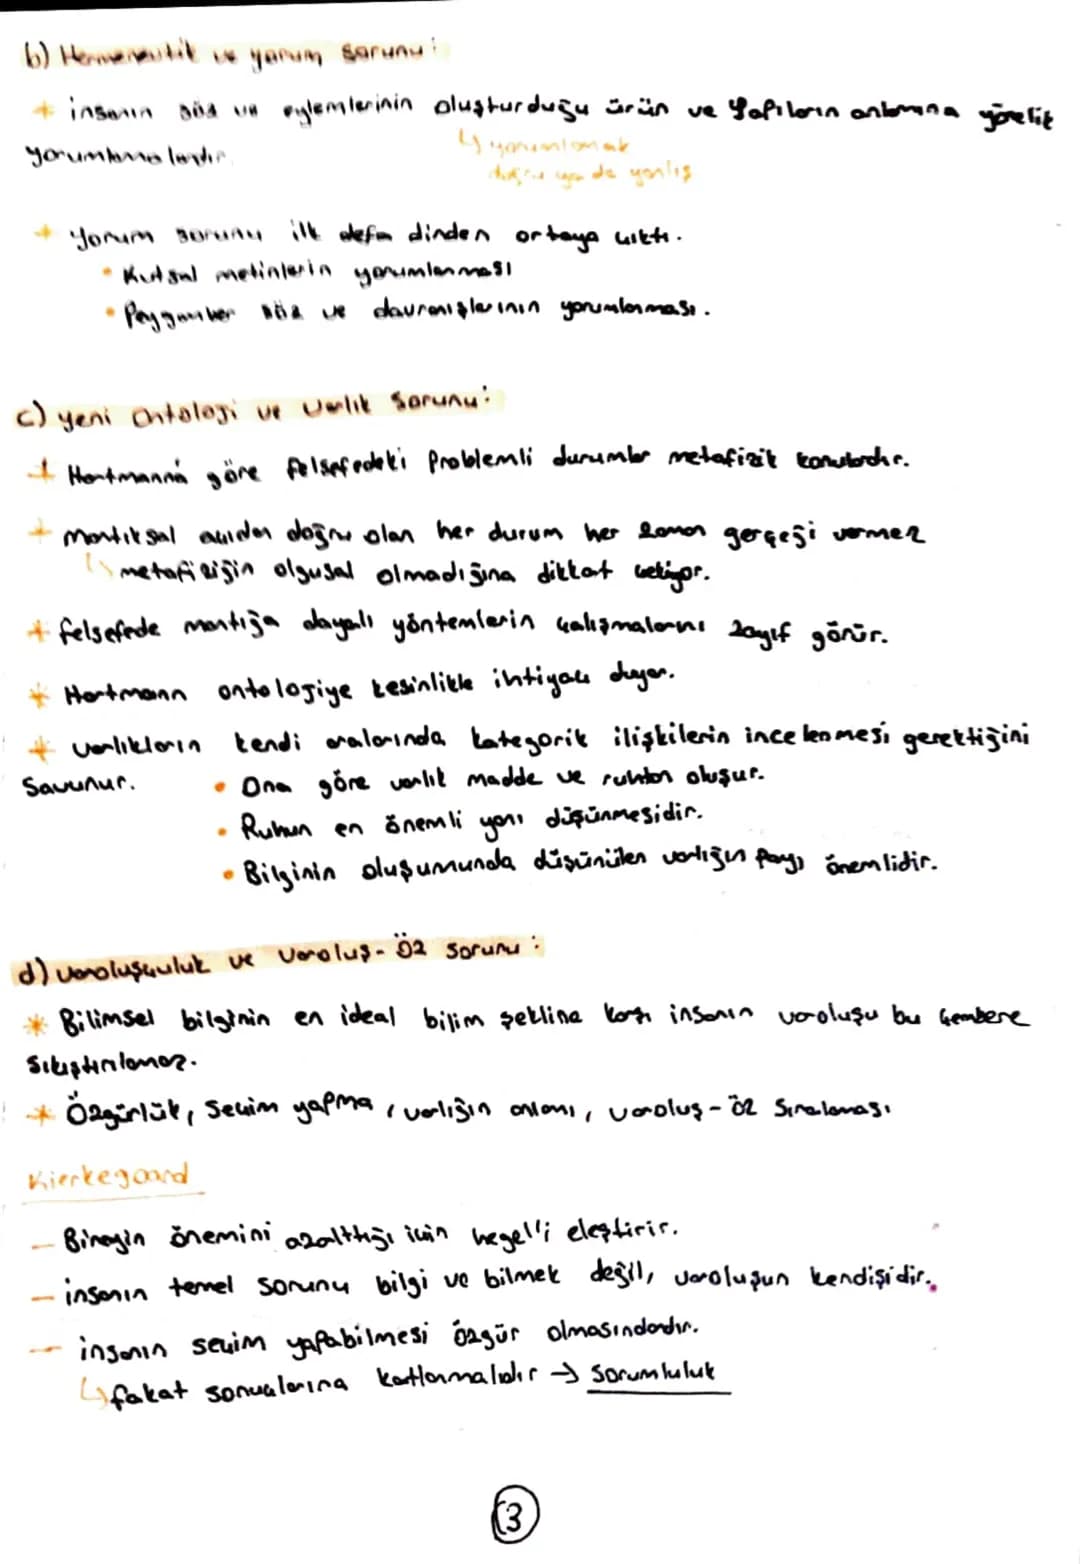 b) Hermeneutik ve yorum sorunu:
+ insanın söz ve eylemlerinin oluşturduğu ürün ve yapıların anlamına yönelik
↳ yorumlamak
yorumlamalardır.
doğru ya da yanlış
+ Yorum sorunu ilk defa dinden ortaya çıktı.
• Kutsal metinlerin yorumlanması
• Peygamber söz ve davranışlarının yorumlanması.
c) yeni ontoloji ve varlık sorunu:
+ Hartmann'a göre felsefedeki problemli durumlar metafizik konulardır.
+ Mantıksal açıdan doğru olan her durum her zaman gerçeği vermez
↳ metafiziğin olgusal olmadığına dikkat çekiyor.
+ felsefede mantığa dayalı yöntemlerin çalışmalarını zayıf görür.
* Hartmann ontolojiye kesinlikle ihtiyaç duyar.
* varlıkların kendi aralarında kategorik ilişkilerin incelenmesi gerektiğini
savunur.
• Ona göre varlık madde ve ruhtan oluşur.
• Ruhun en önemli yanı düşünmesidir.
• Bilginin oluşumunda düşünülen varlığın payı önemlidir.
d) varoluşçuluk ve varoluş-öz sorunu:
* Bilimsel bilginin en ideal bilim şekline karşı insanın varoluşu bu çembere
sıkıştırılamaz.
* Özgürlük, seçim yapma, varlığın anlamı, varoluş-öz sıralaması
Kierkegaard
– Bireyin önemini azalttığı için hegel'i eleştirir.
– insanın temel sorunu bilgi ve bilmek değil, varoluşun kendisidir.
– insanın seçim yapabilmesi özgür olmasındandır.
↳ fakat sonuçlarına katlanmalıdır → Sorumluluk
3